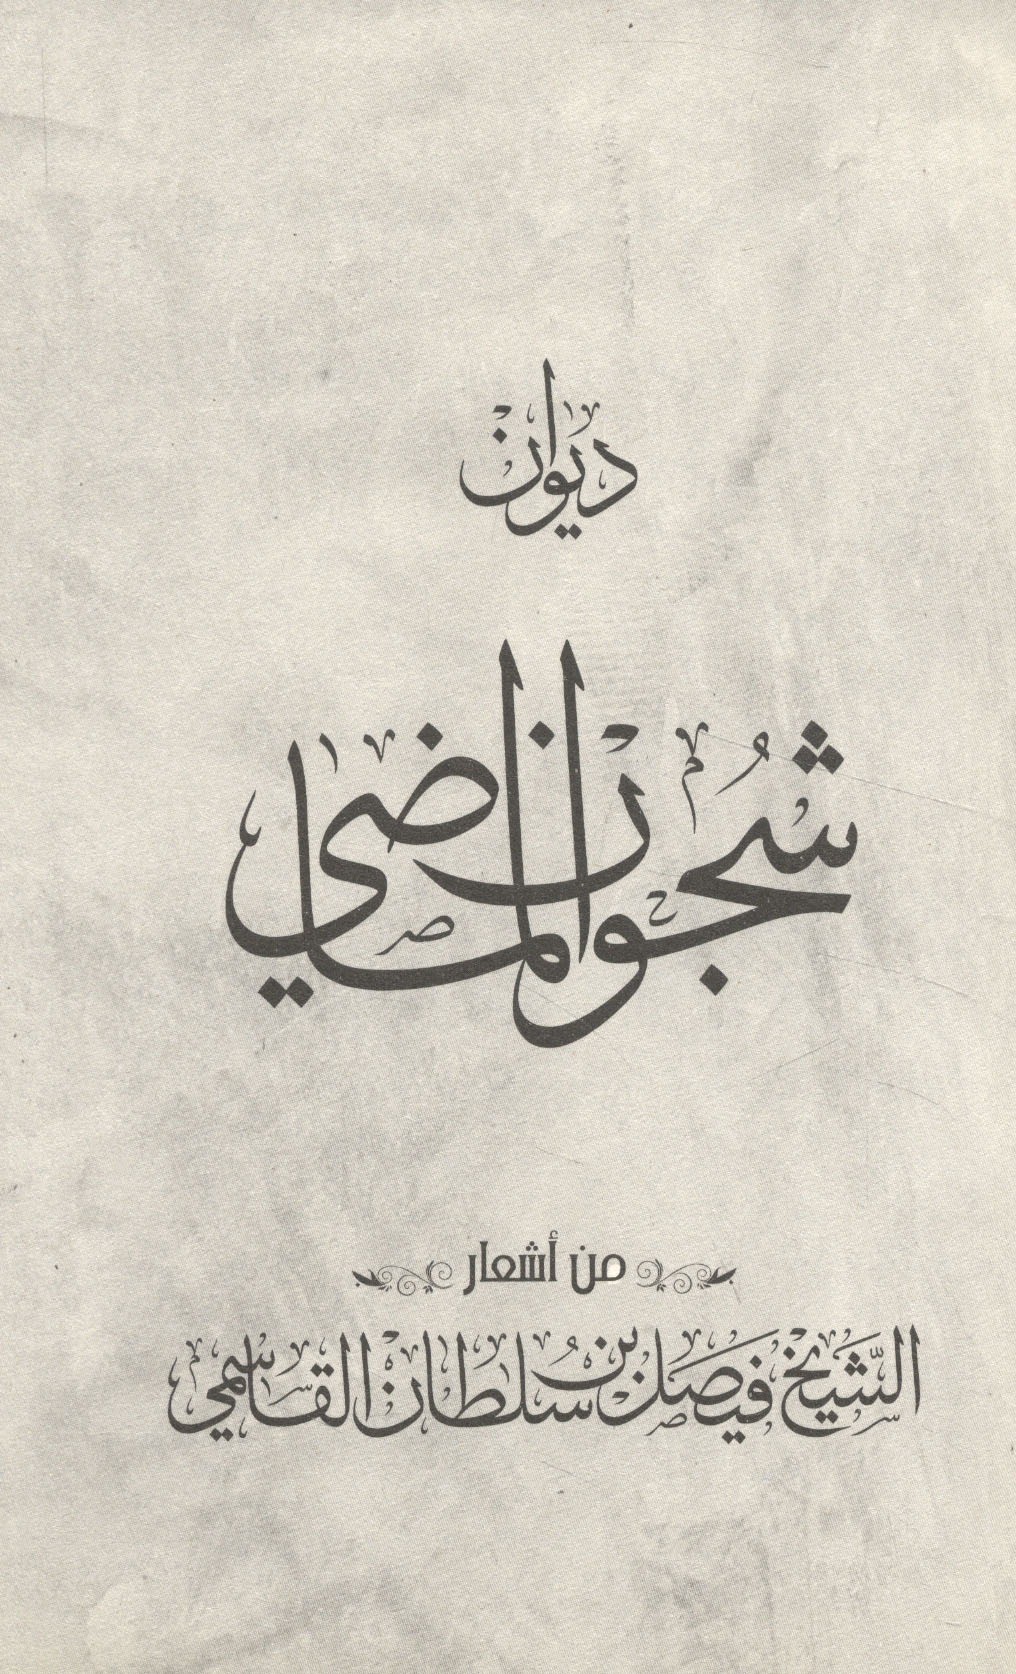 ديوان
شجون الماضي
من أشعار
الشيخ فيصل بن سلطان القاسمي